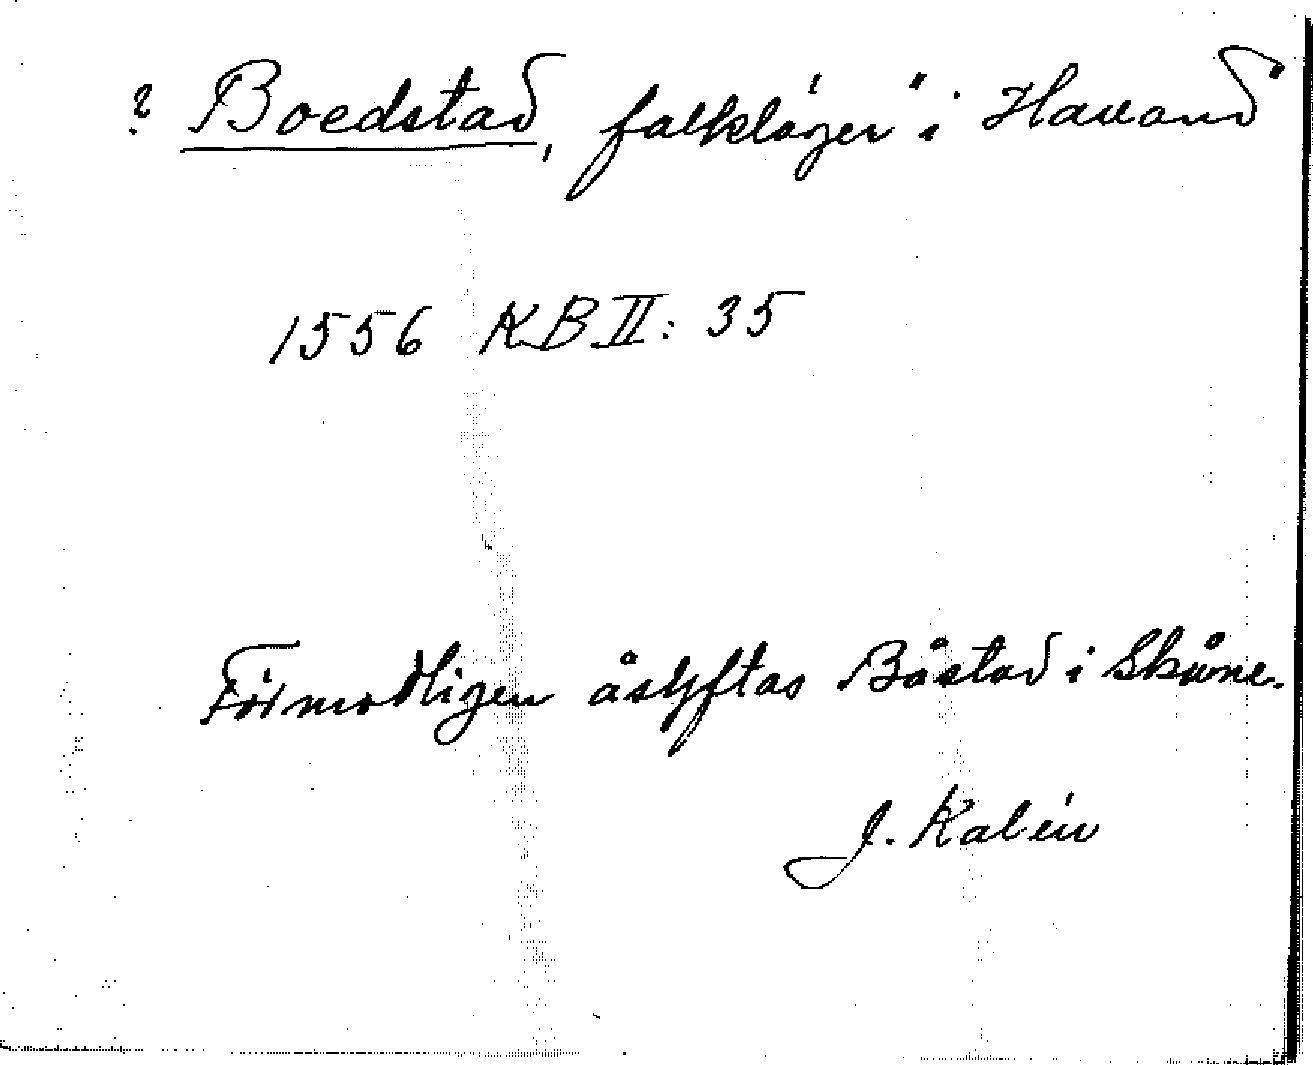 ? Boedstad, "falkläger" i Halland
1556 KB II: 35
Förmodligen åsyftas Båstad i Skåne.
J. Kalén